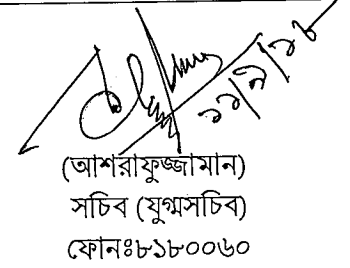 ১১/৯/১৮
(আশরাফুজ্জামান)
সচিব (যুগ্মসচিব)
ফোনঃ৮১৮০০৬০